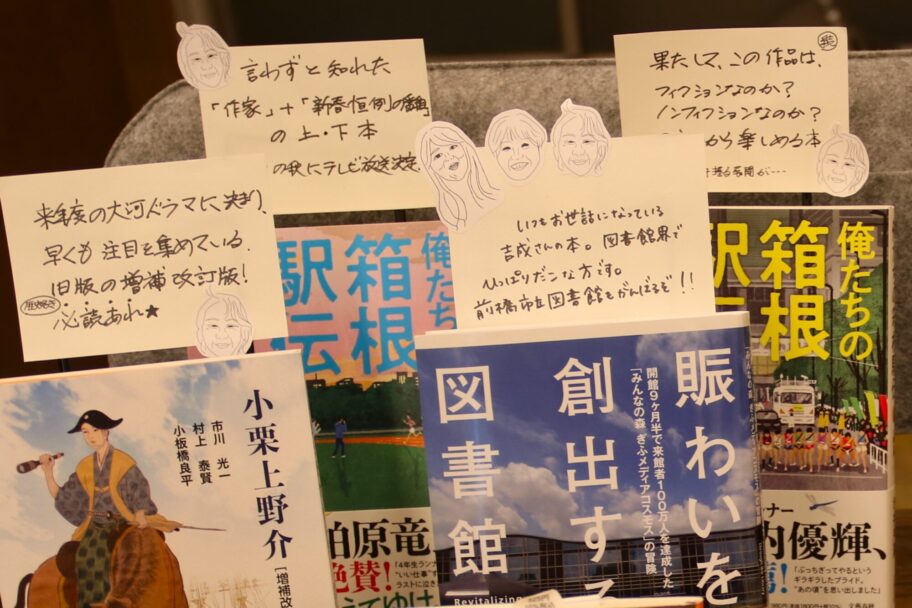 言わずと知れた
「作家」+「新春・恒例の
の上・下本
の秋にテレビ放送決定
果たして、この作品は、
フィクションなのか?
ノンフィクションなのか?
から楽しめる本
来年度の大河ドラマに決まり、
早くも注目を集めている。
旧版の増補改訂版!
必読あれ★
いつもお世話になっている
吉成さんの本。図書館界で
ひっぱりだこな方です。
前橋市立図書館もがんばるぞ!!
俺たち
箱根
駅伝
俺たちの
箱根
駅
小栗上野介
[増補改
市川 光一
村上 泰賢
小板橋良平
賑わいを
創出する
図書館
開館9ヶ月半で来館者100万人を達成した
「みんなの森 ぎふメディアコスモス」の冒険
Revitalizing
柏原竜
絶賛!
「4年生ラン
"いい仕事"
ラストに泣き
ナー
内優輝、
「ぶっちぎってやるという
ギラギラしたプライド。
"あの頃"を思い出しました」